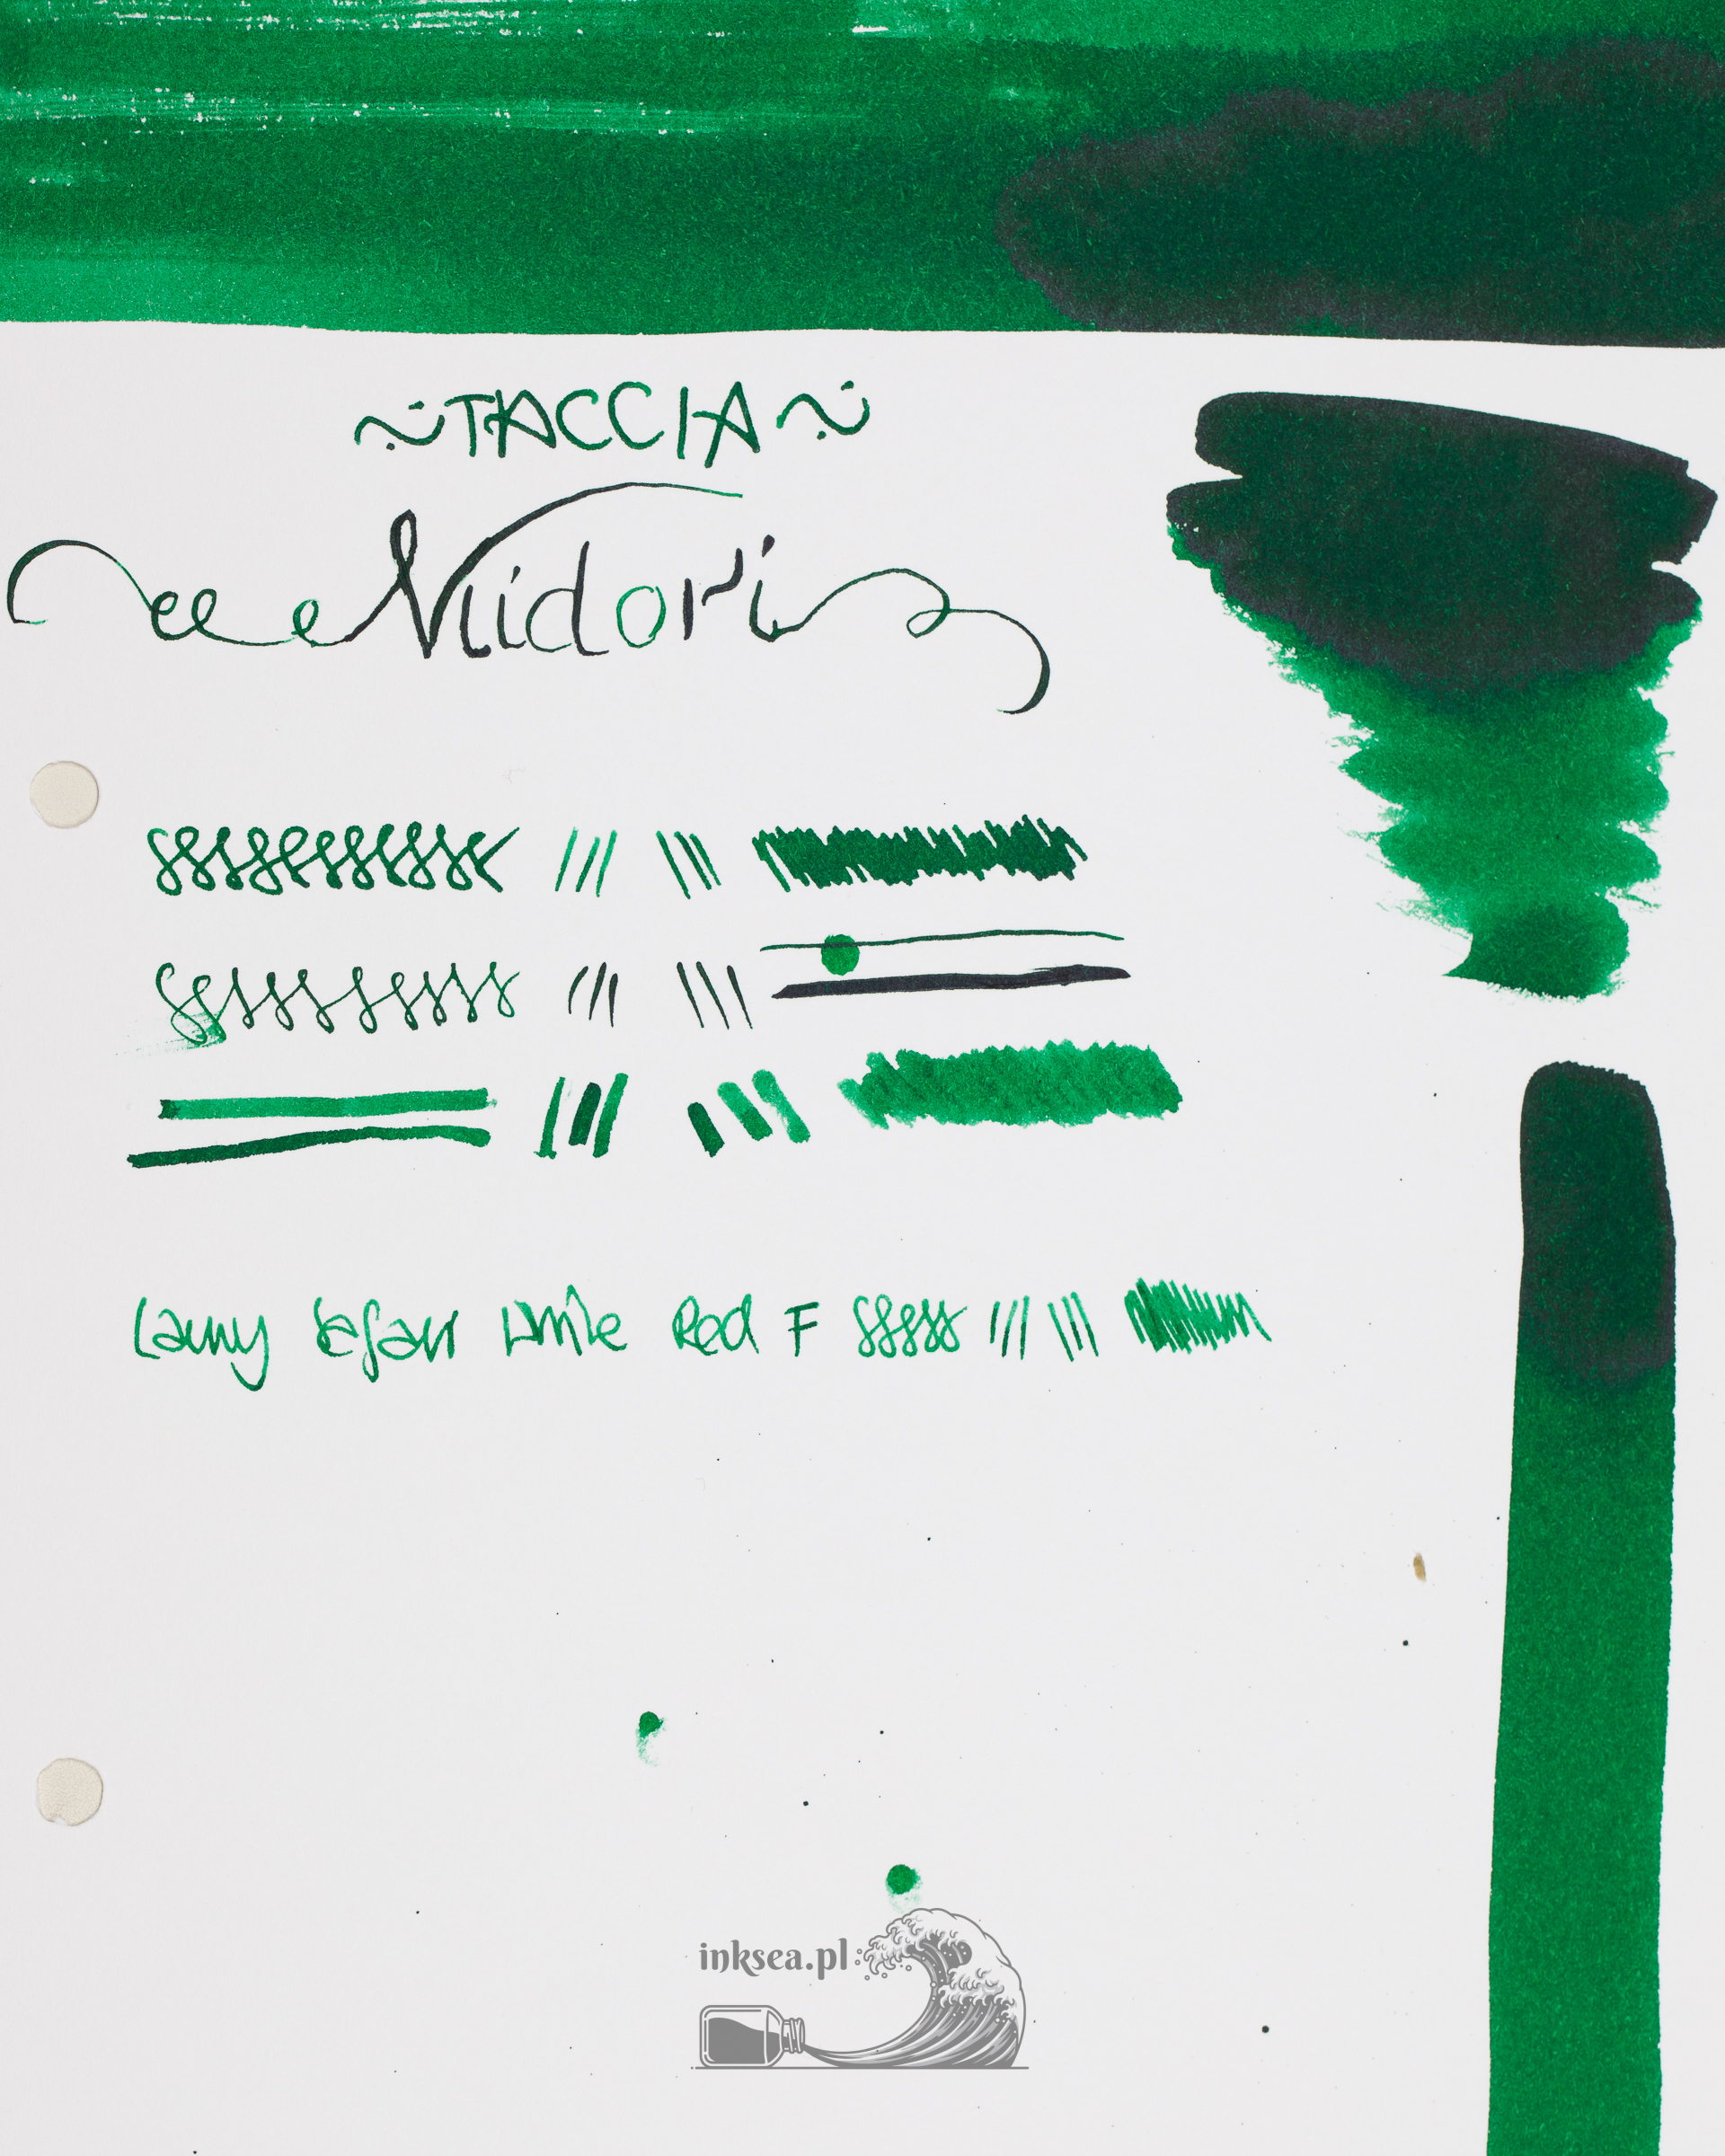 TACCIA
Midori
Lamy Safari White Red F
inksea.pl